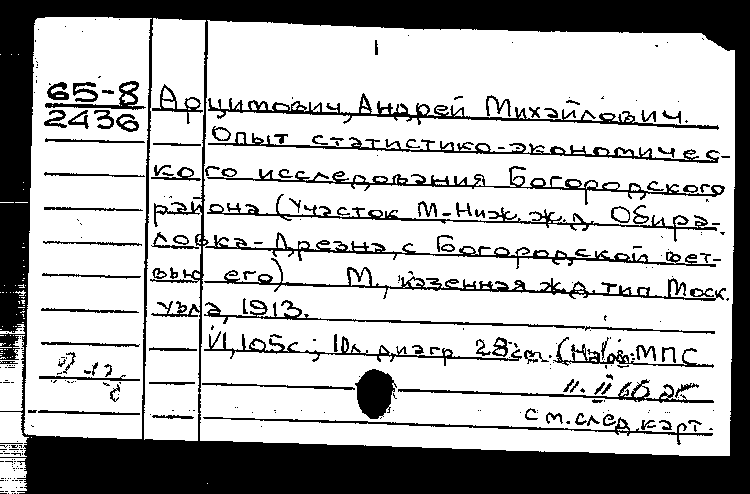 65-8
2436
Арцимович, Андрей Михайлович.
Опыт статистико-экономичес-
кого исследования Богородского
района (Участок М.-Ниж. ж.д. Обира-
ловка-Дрезна, с Богородской вет-
вью его) М., казенная ж.д. тип. Моск.
узла, 1913.
VI, 105с.; 10л. диагр 28см. МПС
см. след. карт.